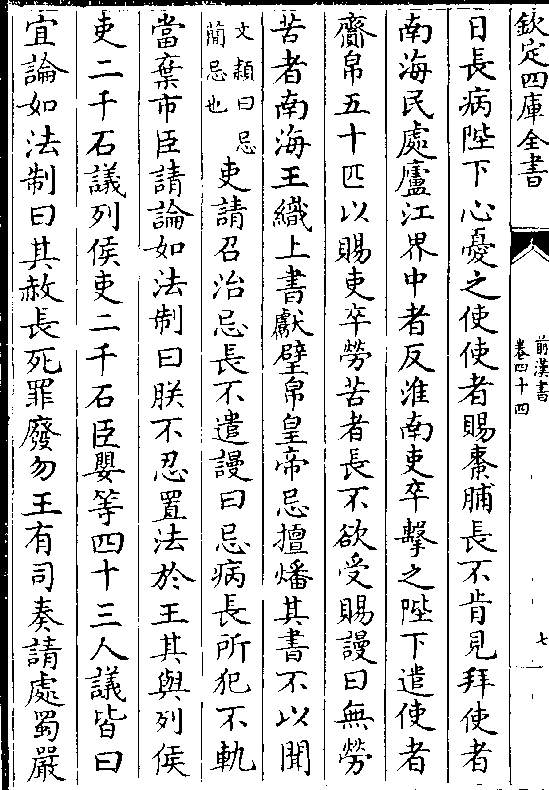 欽定四庫全書
前漢書
卷四十四
七
日長病陛下心憂之使使者賜棗脯長不肯見拜使者
南海民處廬江界中者反淮南吏卒擊之陛下遣使者
齎帛五十匹以賜吏卒勞苦者長不欲受賜謾曰無勞
苦者南海王織上書獻璧帛皇帝忌擅燔其書不以聞
文穎曰忌
蕳忌也
吏請召治忌長不遣謾曰忌病長所犯不軌
當棄市臣請論如法制曰朕不忍置法於王其與列侯
吏二千石議列侯吏二千石臣嬰等四十三人議皆曰
宜論如法制曰其赦長死罪廢勿王有司奏請處蜀嚴